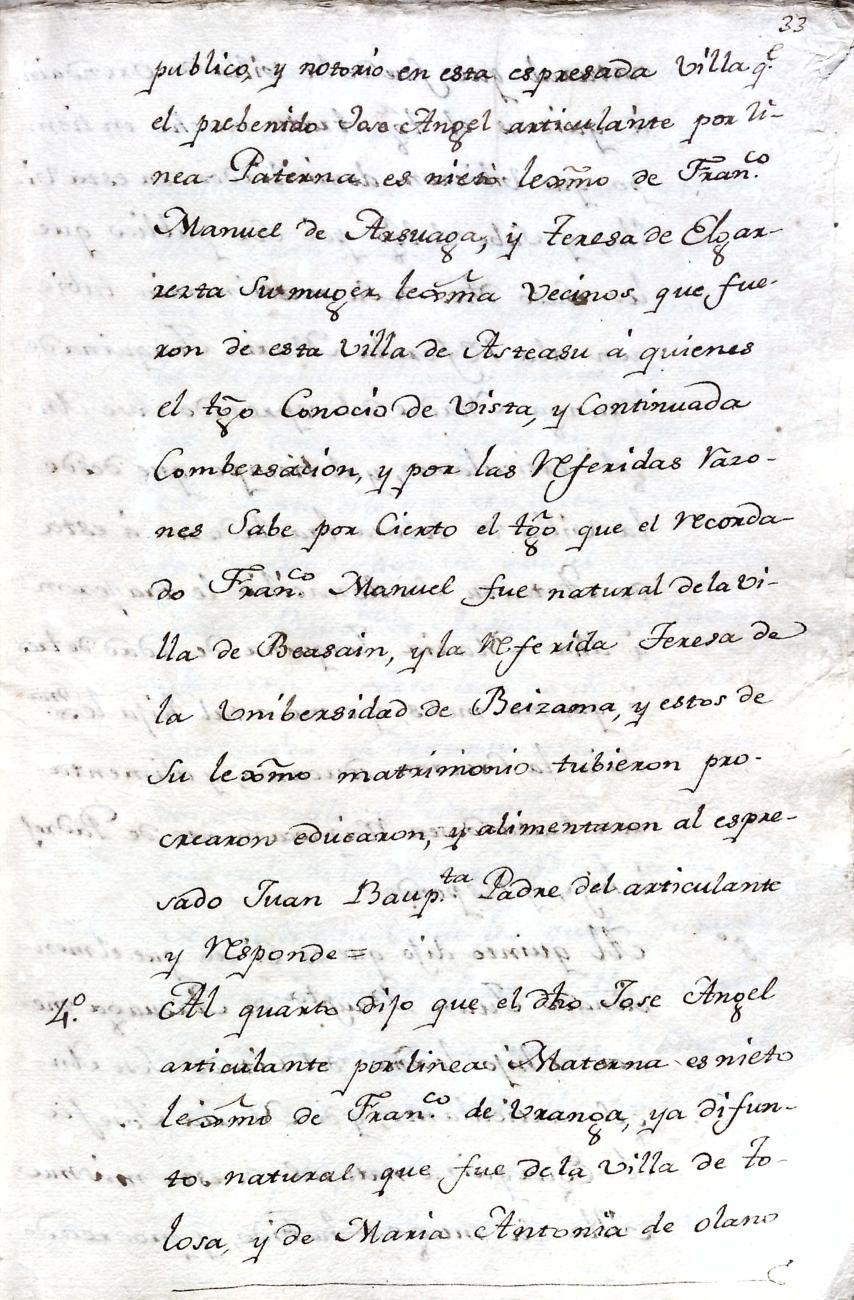 33
publico, y notorio en esta espresada Villa q.e
el prebenido Jose Angel articulante por li-
nea Paterna es nieto lexmo de Fran.co
Manuel de Arsuaga, y Teresa de Elgar-
rezta Su muger lexma Vecinos, que fue-
ron de esta Villa de Asteasu á quienes
el tgo Conocio de Vista, y Continuada
Combersacion, y por las Referidas Razo-
nes Sabe por Cierto el tgo que el Recorda-
do Fran.co Manuel fue natural dela Vi-
lla de Beasain, y la Referida Teresa de
la Vnibersidad de Beizama, y estos de
Su lexmo matrimonio tubieron pro-
crearon educaron, y alimentaron al espre-
sado Juan Baup.ta Padre del articulante
y Responde=
4.º Al quarto dijo que el dho Jose Angel
articulante por linea Materna es nieto
lexmo de Fran.co de Vranga, ya difun-
to natural que fue dela Villa de To-
losa, y de Maria Antonia de Olano